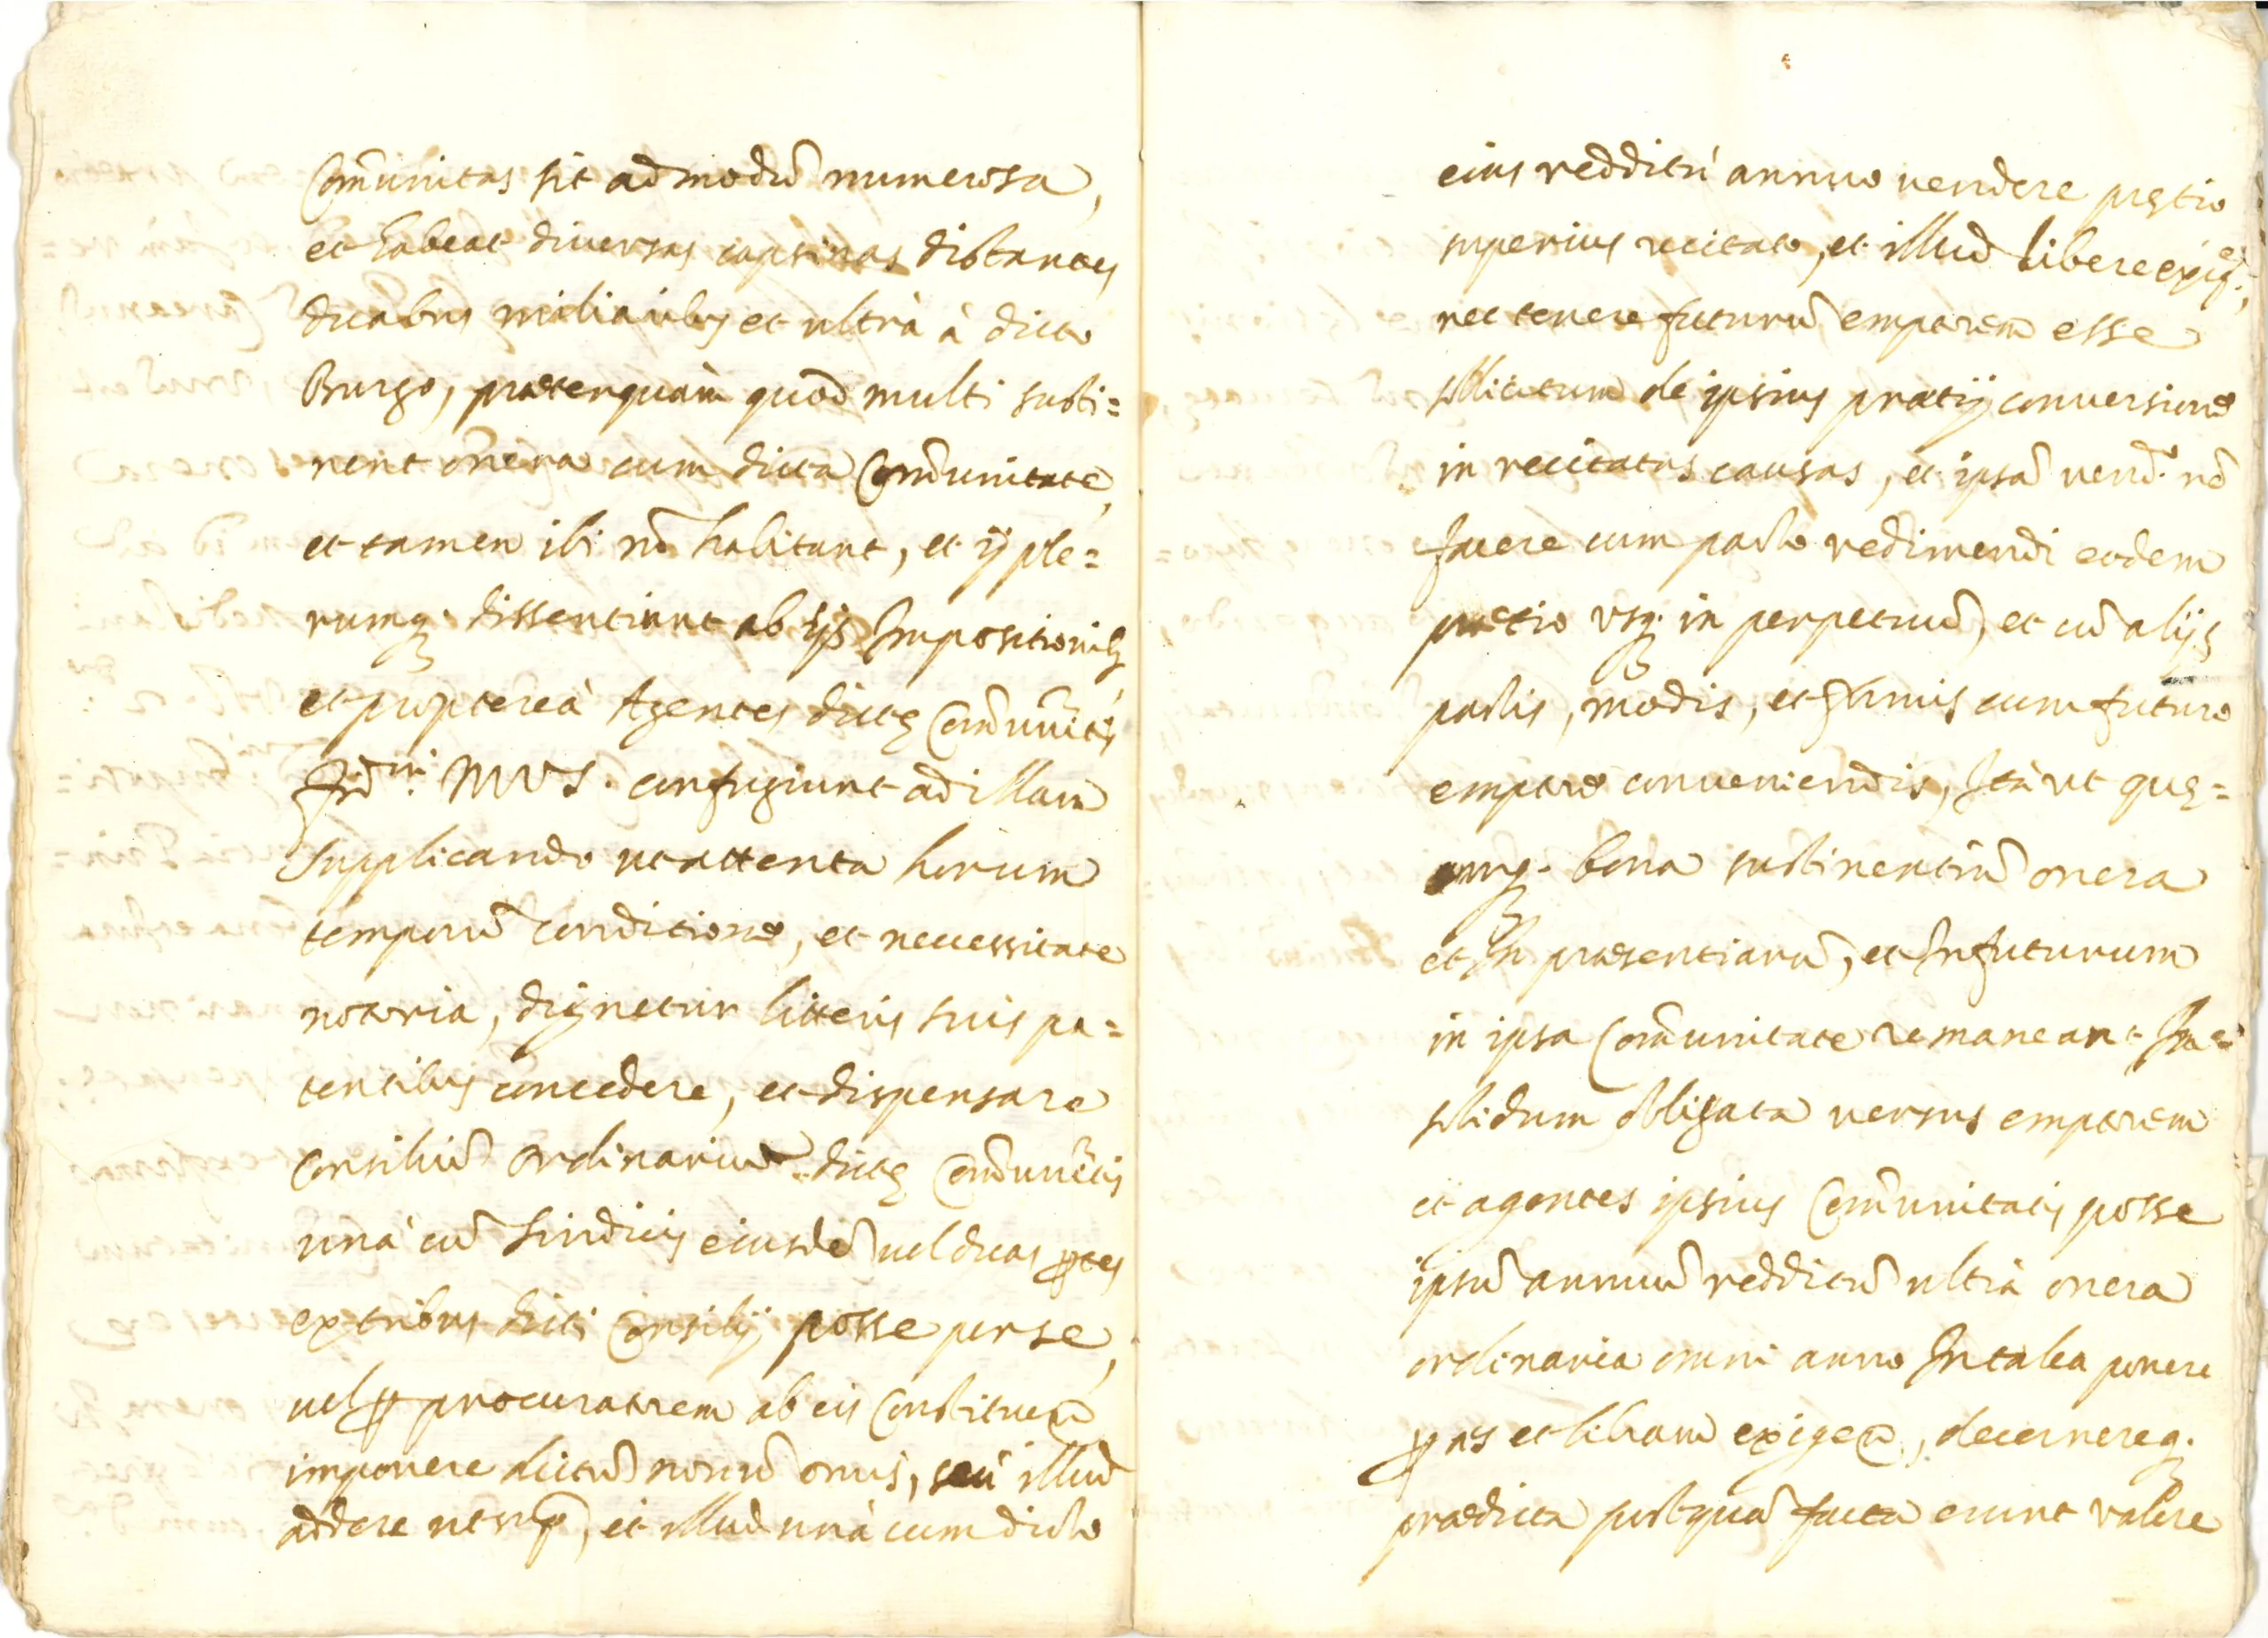 Com̃unitas sit admodũ numerosa,
et habeat diuersas capsinas distantes
duabus miliaribus et ultrà à dicto
Burgo, praeterquàm quod multi susti=
nent onera cum dicta Com̃unitate,
et tamen ibi nõ habitant, et ij ple=
rumq. dissentiunt ab ijs Impositionib9
et proptereà Agentes dictę Com̃unitis
MVS. confugiunt ad illam
supplicando ut attenta horum
temporũ conditione, et necessitate
notoria, dignetur litteris suis pa=
tentibus concedere, et dispensare
Consiliũ ordinariũ dictę Com̃unitis
unà cũ Sindicis eiusdẽ uel duas ꝑtes
ex tribus dicti Consilij posse per se,
uel ꝑ procuratorem ab eis Constituen̄
imponere dictũ nouũ onus, seu illud
addere ut suꝑ, et illud unà cum dicto
eius redditu annuo uendere prętio
superius recitato, et illud liberè exigẽ,
nec tenere futurũ emptorem esse
sollicitum de ipsius praetij conuersione
in recitatas causas, et ipsã uend.ẽ nõ
facere cum pacto redimendi eodem
praetio usq. in perpetuũ, et cũ alijs
pactis, modis, et formis cum futuro
emptore conueniendis, Ità ut quę=
cumq. bona sustinentiũ onera
et In praesentiarũ, et In futurum
in ipsa Com̃unitate remaneant In=
solidum obligata uersus emptorem
et agentes ipsius Com̃unitatis posse
ipsũ annuũ redditũ ultrà onera
ordinaria omni anno In talea ponere
et exigere, decernereq.
praedicta postquã facta erunt valere